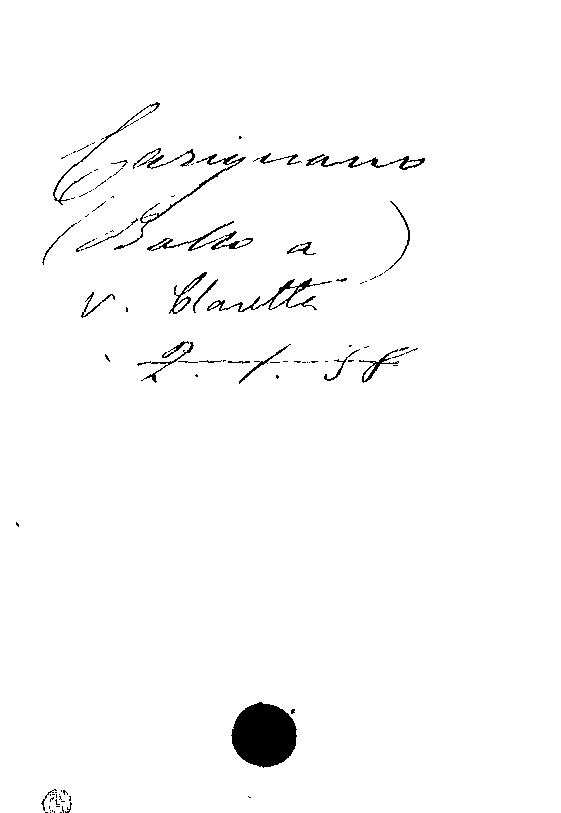 Carignano
(Ballo a )
v. Claretta
2. 1. 58